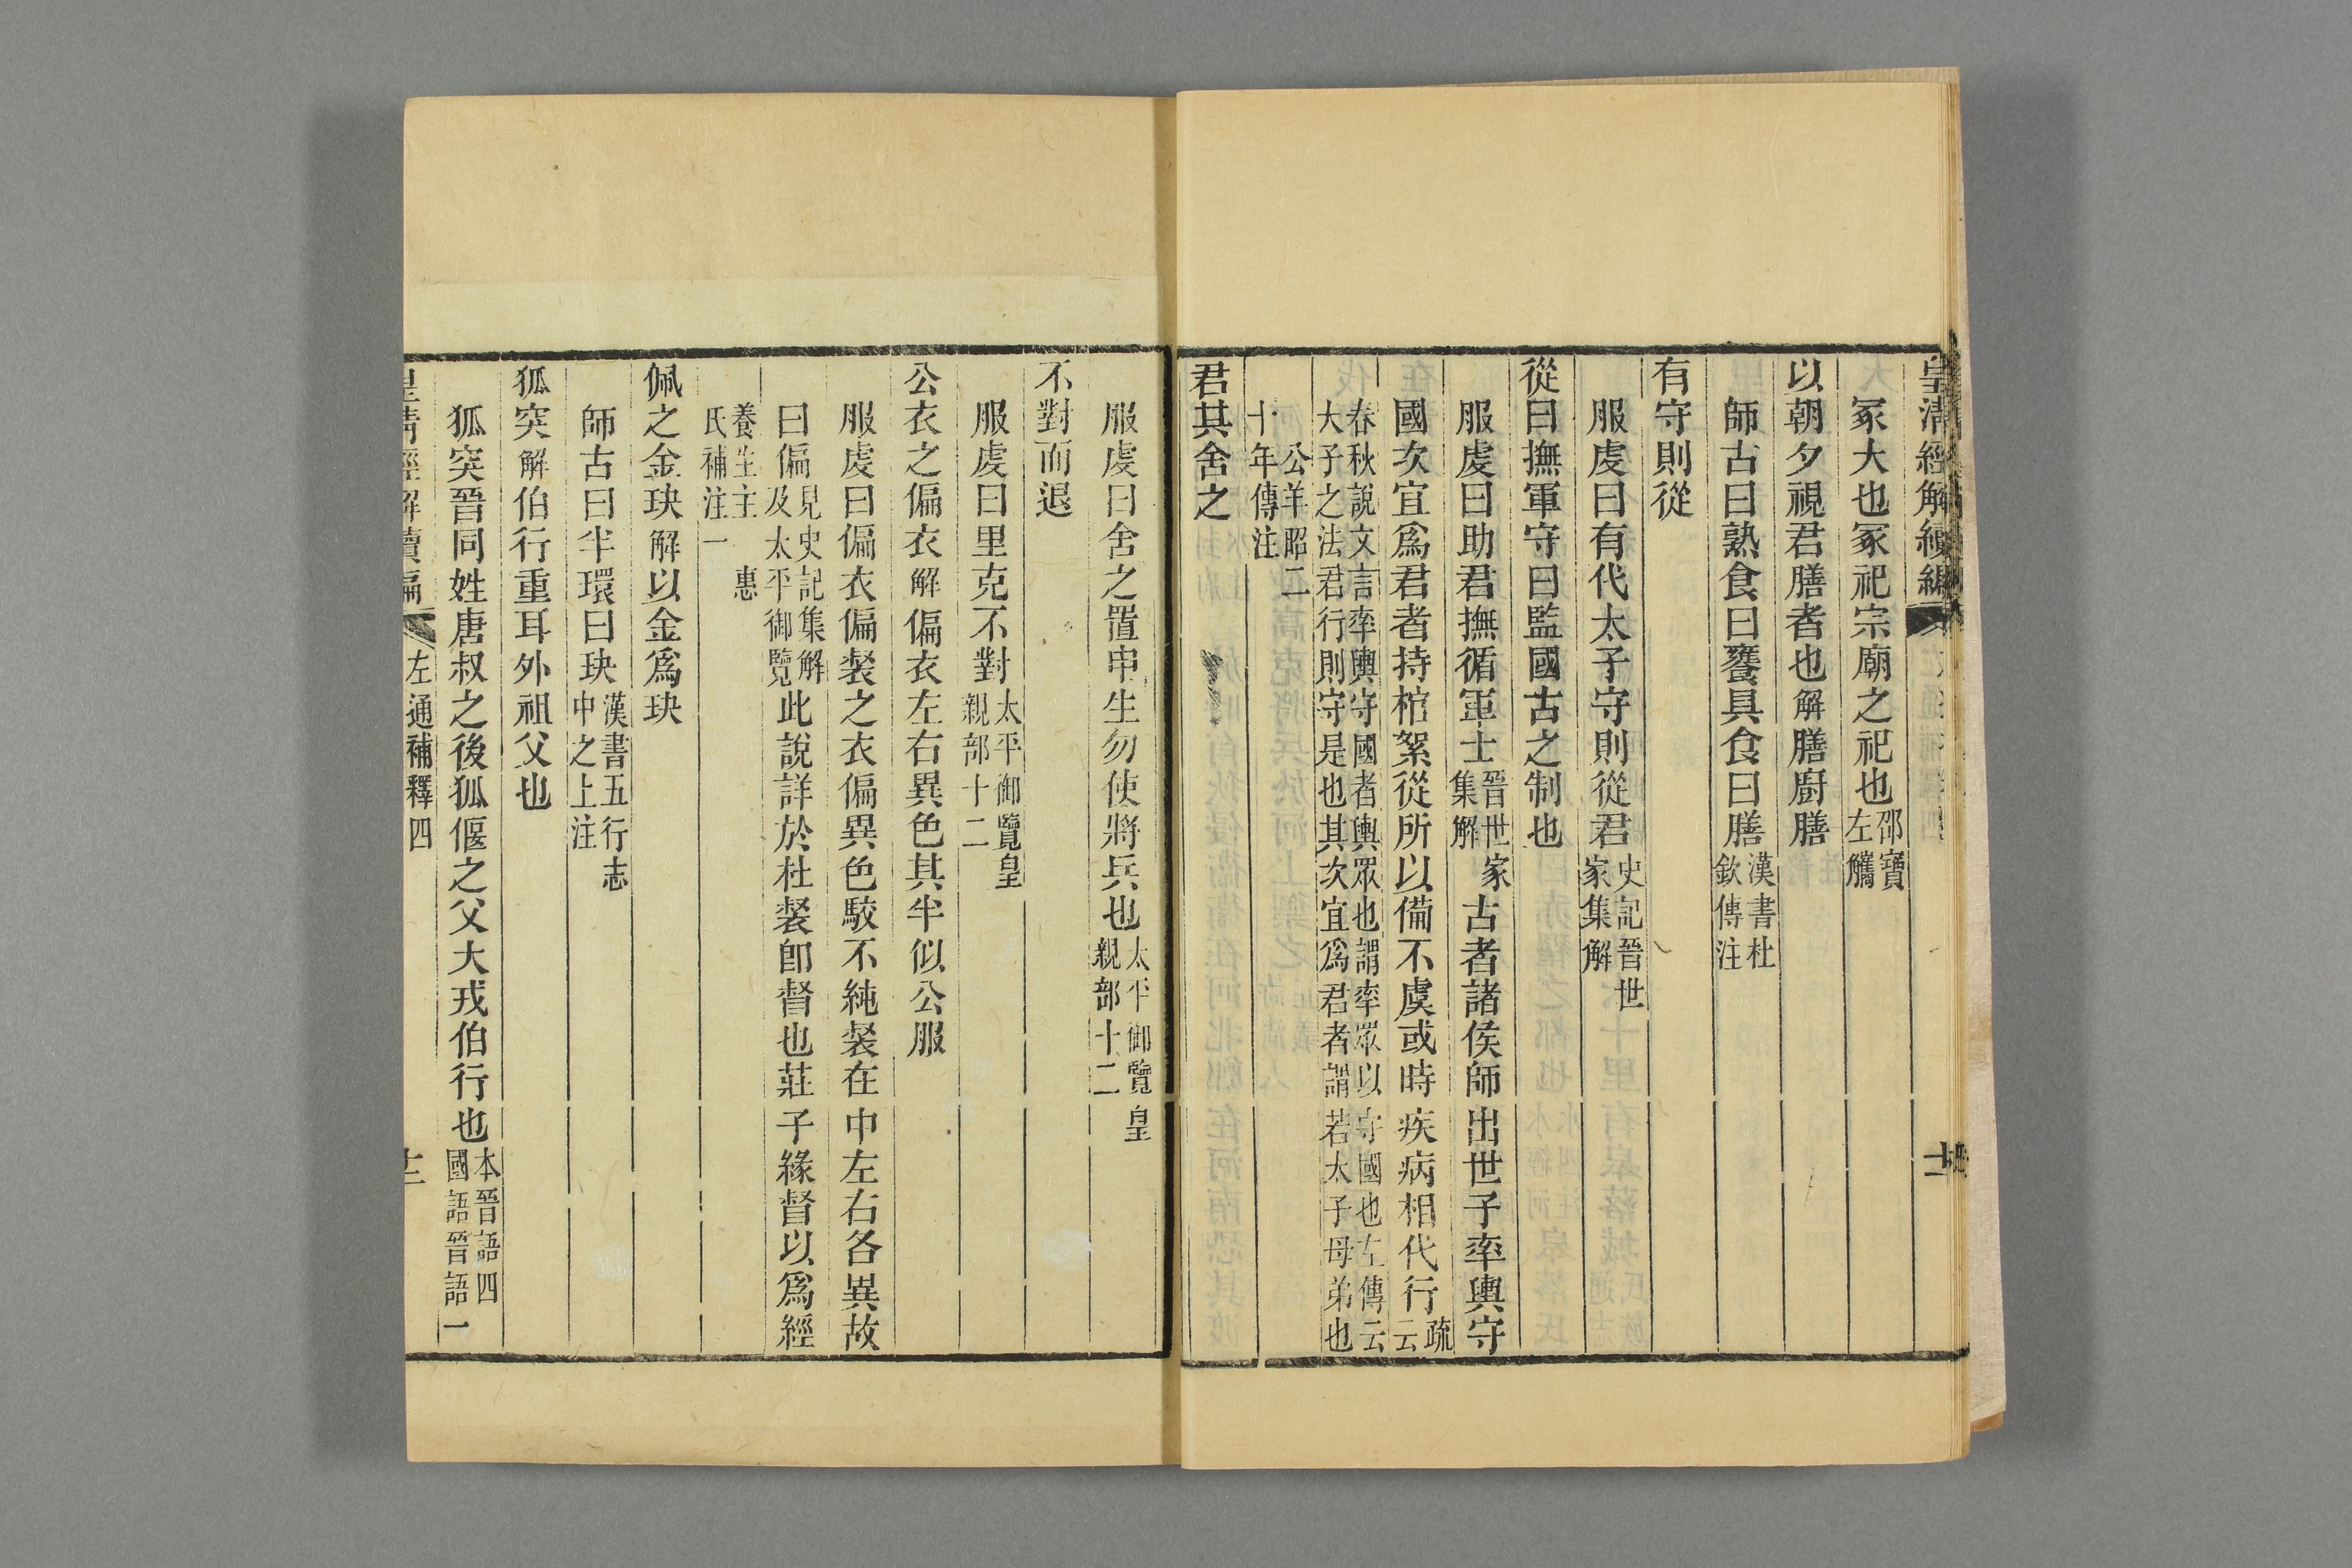 皇清經解續編
冢大也冢祀宗廟之祀也邵寶左觿
以朝夕視君膳者也解膳廚膳
師古曰熟食曰饔具食曰膳漢書杜欽傳注
有守則從
服虔曰有代太子守則從君史記晉世家集解
從曰撫軍守曰監國古之制也
服虔曰助君撫循軍士晉世家集解古者諸侯師出世子率輿守
國次宜爲君者持棺絮從所以備不虞或時疾病相代行疏云
春秋說文言率輿守國者輿眾也謂率眾以守國也左傳云大子之法君行則守是也其次宜爲君者謂若太子母弟也
公羊昭二十年傳注
君其舍之
服虔曰舍之置申生勿使將兵也太平御覽皇親部十二
不對而退
服虔曰里克不對太平御覽皇親部十二
公衣之偏衣解偏衣左右異色其半似公服
服虔曰偏衣偏裻之衣偏異色駮不純裻在中左右各異故
曰偏見史記集解及太平御覽此說詳於杜裻卽督也莊子緣督以爲經
養生主 惠氏補注一
佩之金玦解以金爲玦
師古曰半環曰玦漢書五行志中之上注
狐突解伯行重耳外祖父也
狐突晉同姓唐叔之後狐偃之父大戎伯行也本晉語四國語晉語一
皇清經解續編 左通補釋四 十二